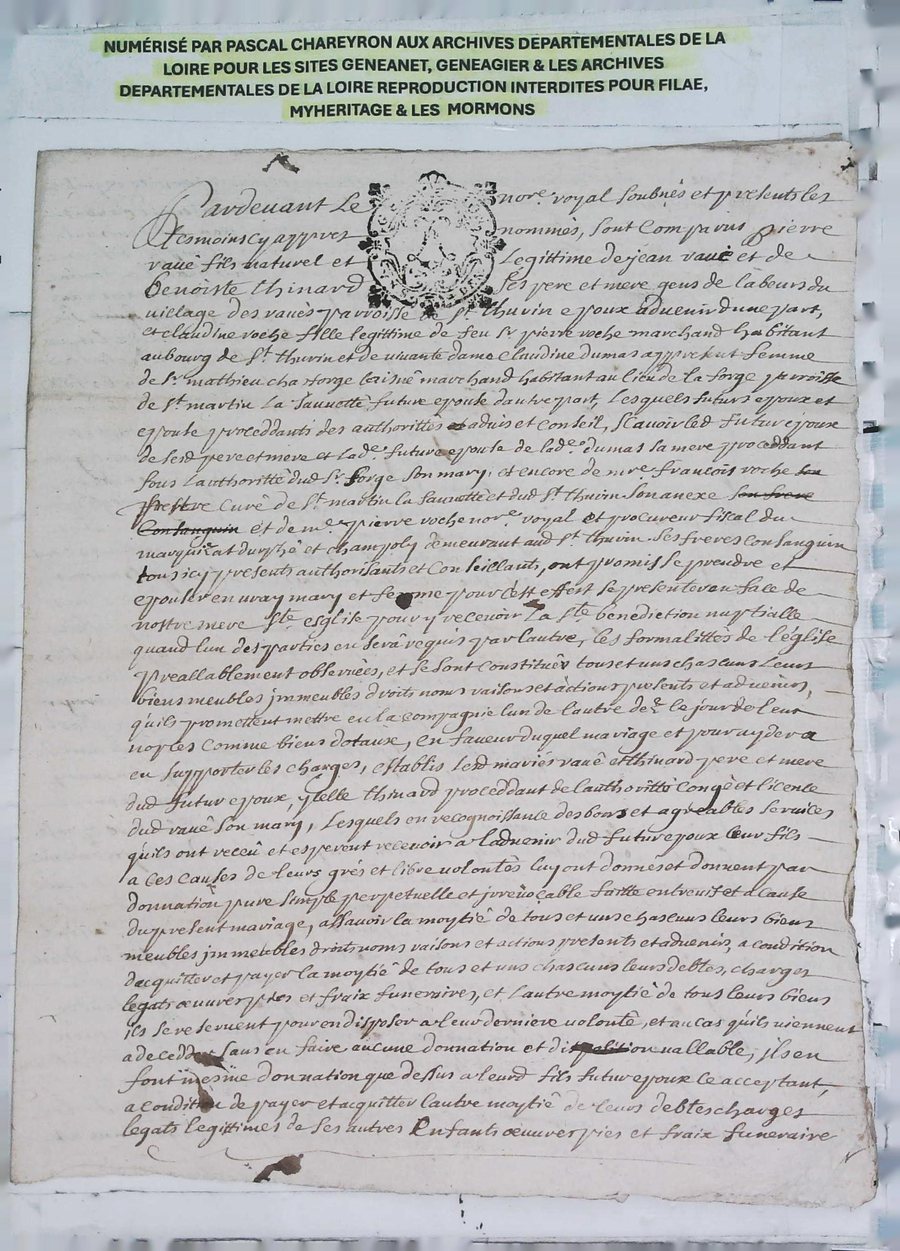 NUMÉRISÉ PAR PASCAL CHAREYRON AUX ARCHIVES DEPARTEMENTALES DE LA
LOIRE POUR LES SITES GENEANET, GENEAGIER & LES ARCHIVES
DEPARTEMENTALES DE LA LOIRE REPRODUCTION INTERDITES POUR FILAE,
MYHERITAGE & LES MORMONS
Pardevant Le nore royal soubnès et presents les
tesmoins cy appres nommès, sont comparus pierre
rauè fils naturel et Legittime de jean rauè et de
Benoiste thinard ses pere et mere gens de labeurs du
village des rauès parroisse de St thurin epoux aduenir dune part,
et claudine roche fille legittime de feu Sr pierre roche marchand habitant
au bourg de St thurin et de viuante dame claudine dumas appresent femme
de Sr mathieu chasforge laisnè marchand habitant au lieu de la forge parroisse
de St martin La Sauuettè future epouse dautre part, Lesquels futurs epoux et
epouse proceddants des authorittès aduis et conseil, Scauoir led futur epoux
de sesd pere et mere et Lade future epouse de lade dumas sa mere proceddant
sous Lauthorittè dud Sr forge son mary, et encore de mre francois roche son
prestre curè de St martin la Sauuette et dud St thurin son anexe son frere
Consanguin et de me pierre roche nore royal et procureur fiscal du
marquisat durphè et champoly demeurant aud St thurin ses freres consanguin
tous icy presents authorisants et conseillants, ont promis se prendre et
epouser en vray mary et femme pour cest effest se presenter en face de
nostre mere Ste esglise pour y receuoir La Ste benediction nuptialle
quand lun des parties en serà requis par lautre, les formalittès de l'église
preallablement obseruèes, et se sont constituèr tous et uns chascuns leurs
biens meubles jmmeubles droits noms raisons et actions presents et aduenirs,
qu'ils promettent mettre en la compagnie lun de lautre le jour de leur
nopces comme biens dotaux, en faueur duquel mariage et pour ayder a
en supporter les charges, establis lesd mariés rauè et thinard pere et mere
dud futur epoux, ycelle thinard proceddant de lauthorittè congè et licence
dud rauè son mary, Lesquels en recognoissance des bons et agreables seruices
qu'ils ont receû et esperent receuoir a laduenir dud futur epoux leur fils
a ces causes de leurs grés et libre volontès luy ont donnè et donnent par
donnation pure simple perpetuelle et jrreuocable faitte entre vif et a cause
du present mariage, assauoir la moytiè de tous et uns chascuns leurs biens
meubles jmmeubles droits noms raisons et actions presents et aduenir, a condition
dacquitter et payer la moytiè de tous et uns chascuns leurs debtes, charges
legats œuures pies et fraix funeraires, et Lautre moytiè de tous leurs biens
ils se reseruent pour en disposer a leur derniere volontè, et au cas qu'ils viennent
a decedder sans en faire aucune donnation et disposition vallable, ils en
font mesme donnation que dessus a leurd fils futur epoux ce acceptant,
a condition de payer et acquitter lautre moytiè de leurs debtes charges
legats legittimes de ses autres Enfants œuures pies et fraix funeraire